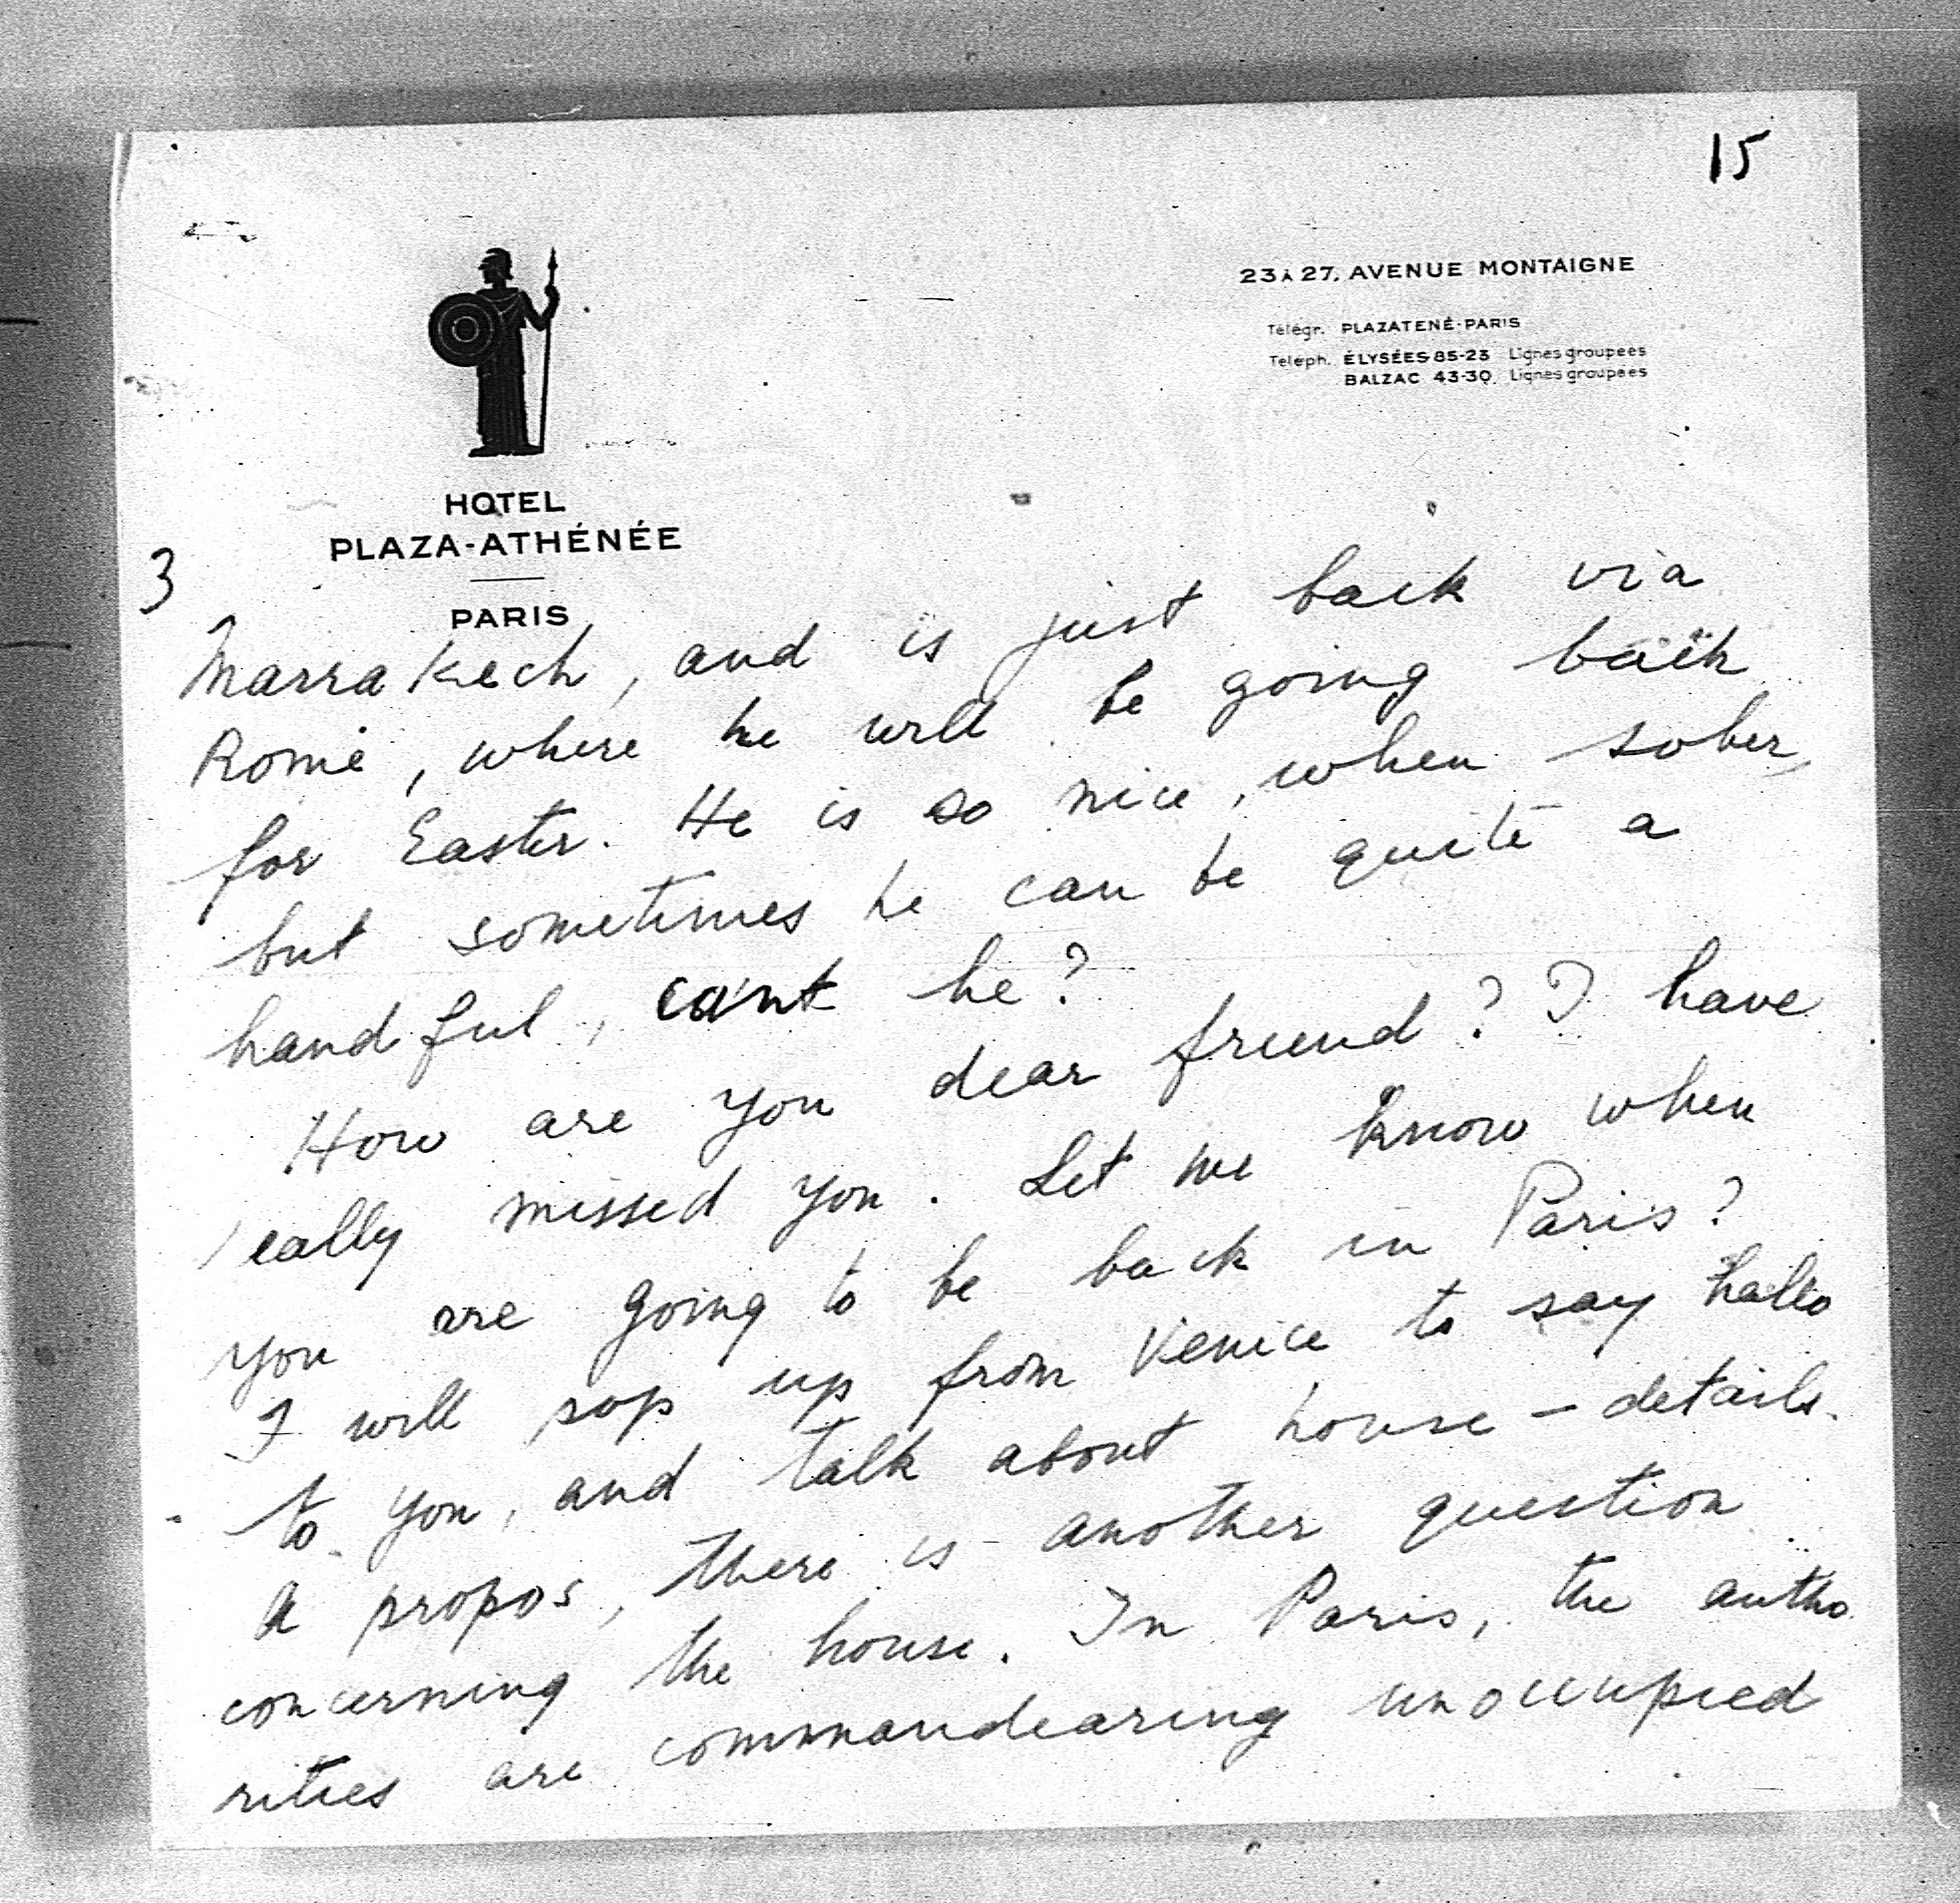 15
23 À 27, AVENUE MONTAIGNE
Télégr. PLAZATENÉ-PARIS
Téléph. ÉLYSÉES 85-23 Lignes groupées
BALZAC 43-30. Lignes groupées
HOTEL
PLAZA-ATHÉNÉE
PARIS
3
Marrakech, and is just back via
Rome, where he will be going back
for Easter. He is so nice, when sober,
but sometimes he can be quite a
handful, can't he?
How are you dear friend? I have
really missed you. Let me know when
you are going to be back in Paris?
I will pop up from Venice to say hallo
to you, and talk about house – details.
A propos, there is another question
concerning the house. In Paris, the autho
rities are commandearing unoccupied